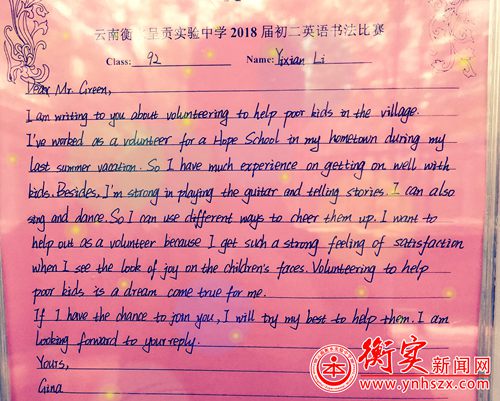 云南衡 呈贡实验中学2018届初二英语书法比赛
Class: 92 Name: Yixian Li
Dear Mr. Green,
I am writing to you about volunteering to help poor kids in the village.
I've worked as a volunteer for a Hope School in my hometown during my
last summer vacation. So I have much experience on getting on well with
kids. Besides, I'm strong in playing the guitar and telling stories. I can also
sing and dance. So I can use different ways to cheer them up. I want to
help out as a volunteer because I get such a strong feeling of satisfaction
when I see the look of joy on the children's faces. Volunteering to help
poor kids is a dream come true for me.
If I have the chance to join you, I will try my best to help them. I am
looking forward to your reply.
Yours,
Gina
衡实新闻网
www.ynhszx.com